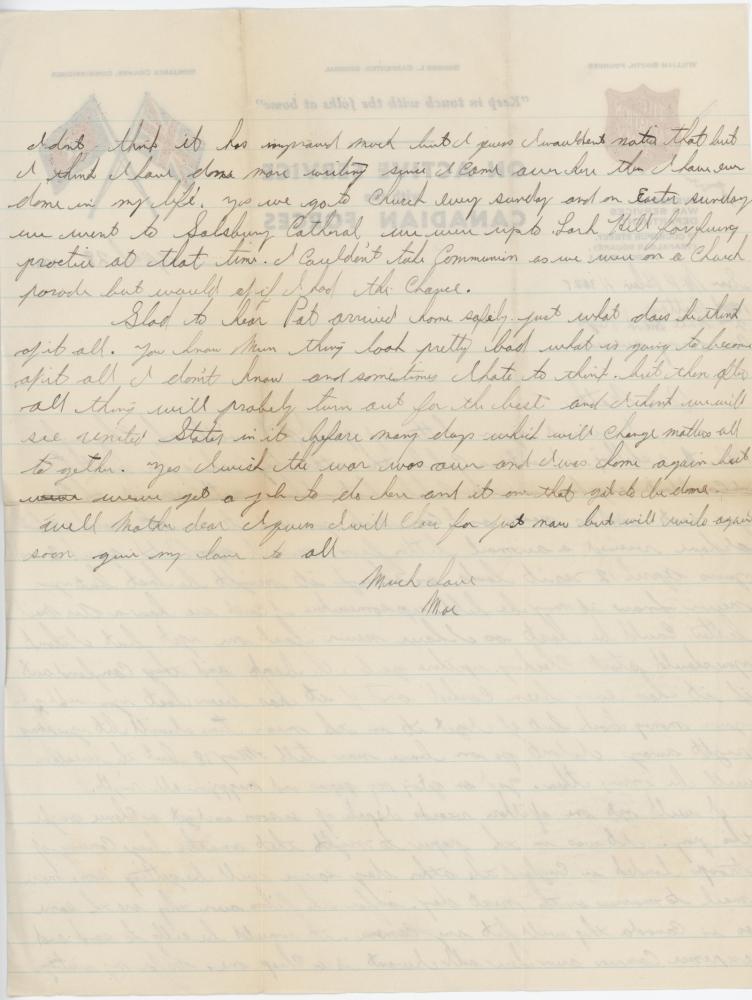 I don't think it has improved much but I guess I wouldn't notice that but
I think I have done more writing since I come over here then I have ever
done in my life. Yes we go to Church every sunday and on Easter sunday
we went to Salsbury Cathral we were up to Lark Hill for firing
practice at that time. I couldn't take Communion as we were on a Church
parade but would of if I had the Chance.
Glad to hear Pat arrived home safely. just what does he think
of it all. You know Mum thing look pretty bad what is going to become
of it all I don't know and sometimes I hate to think. but then after
all thing will probely turn out for the best and I think we will
see United States in it before many days which will change matters all
to gether. Yes I wish the war was over and I was home again but
we've got a job to do here and it one that got to be done.
Well Mother dear I guess I will close for just now but will write again
soon give my love to all
Much love
Moe